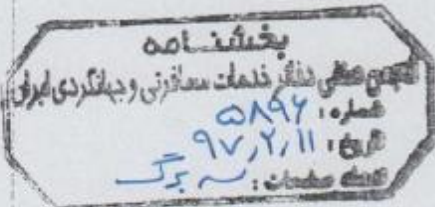 بخشنامه
انجمن صنفی دفاتر خدمات مسافرتی و جهانگردی ایران
شماره : ۵۸۹۶
تاریخ : ۹۷٫۲٫۱۱
تعداد صفحات : سه برگ